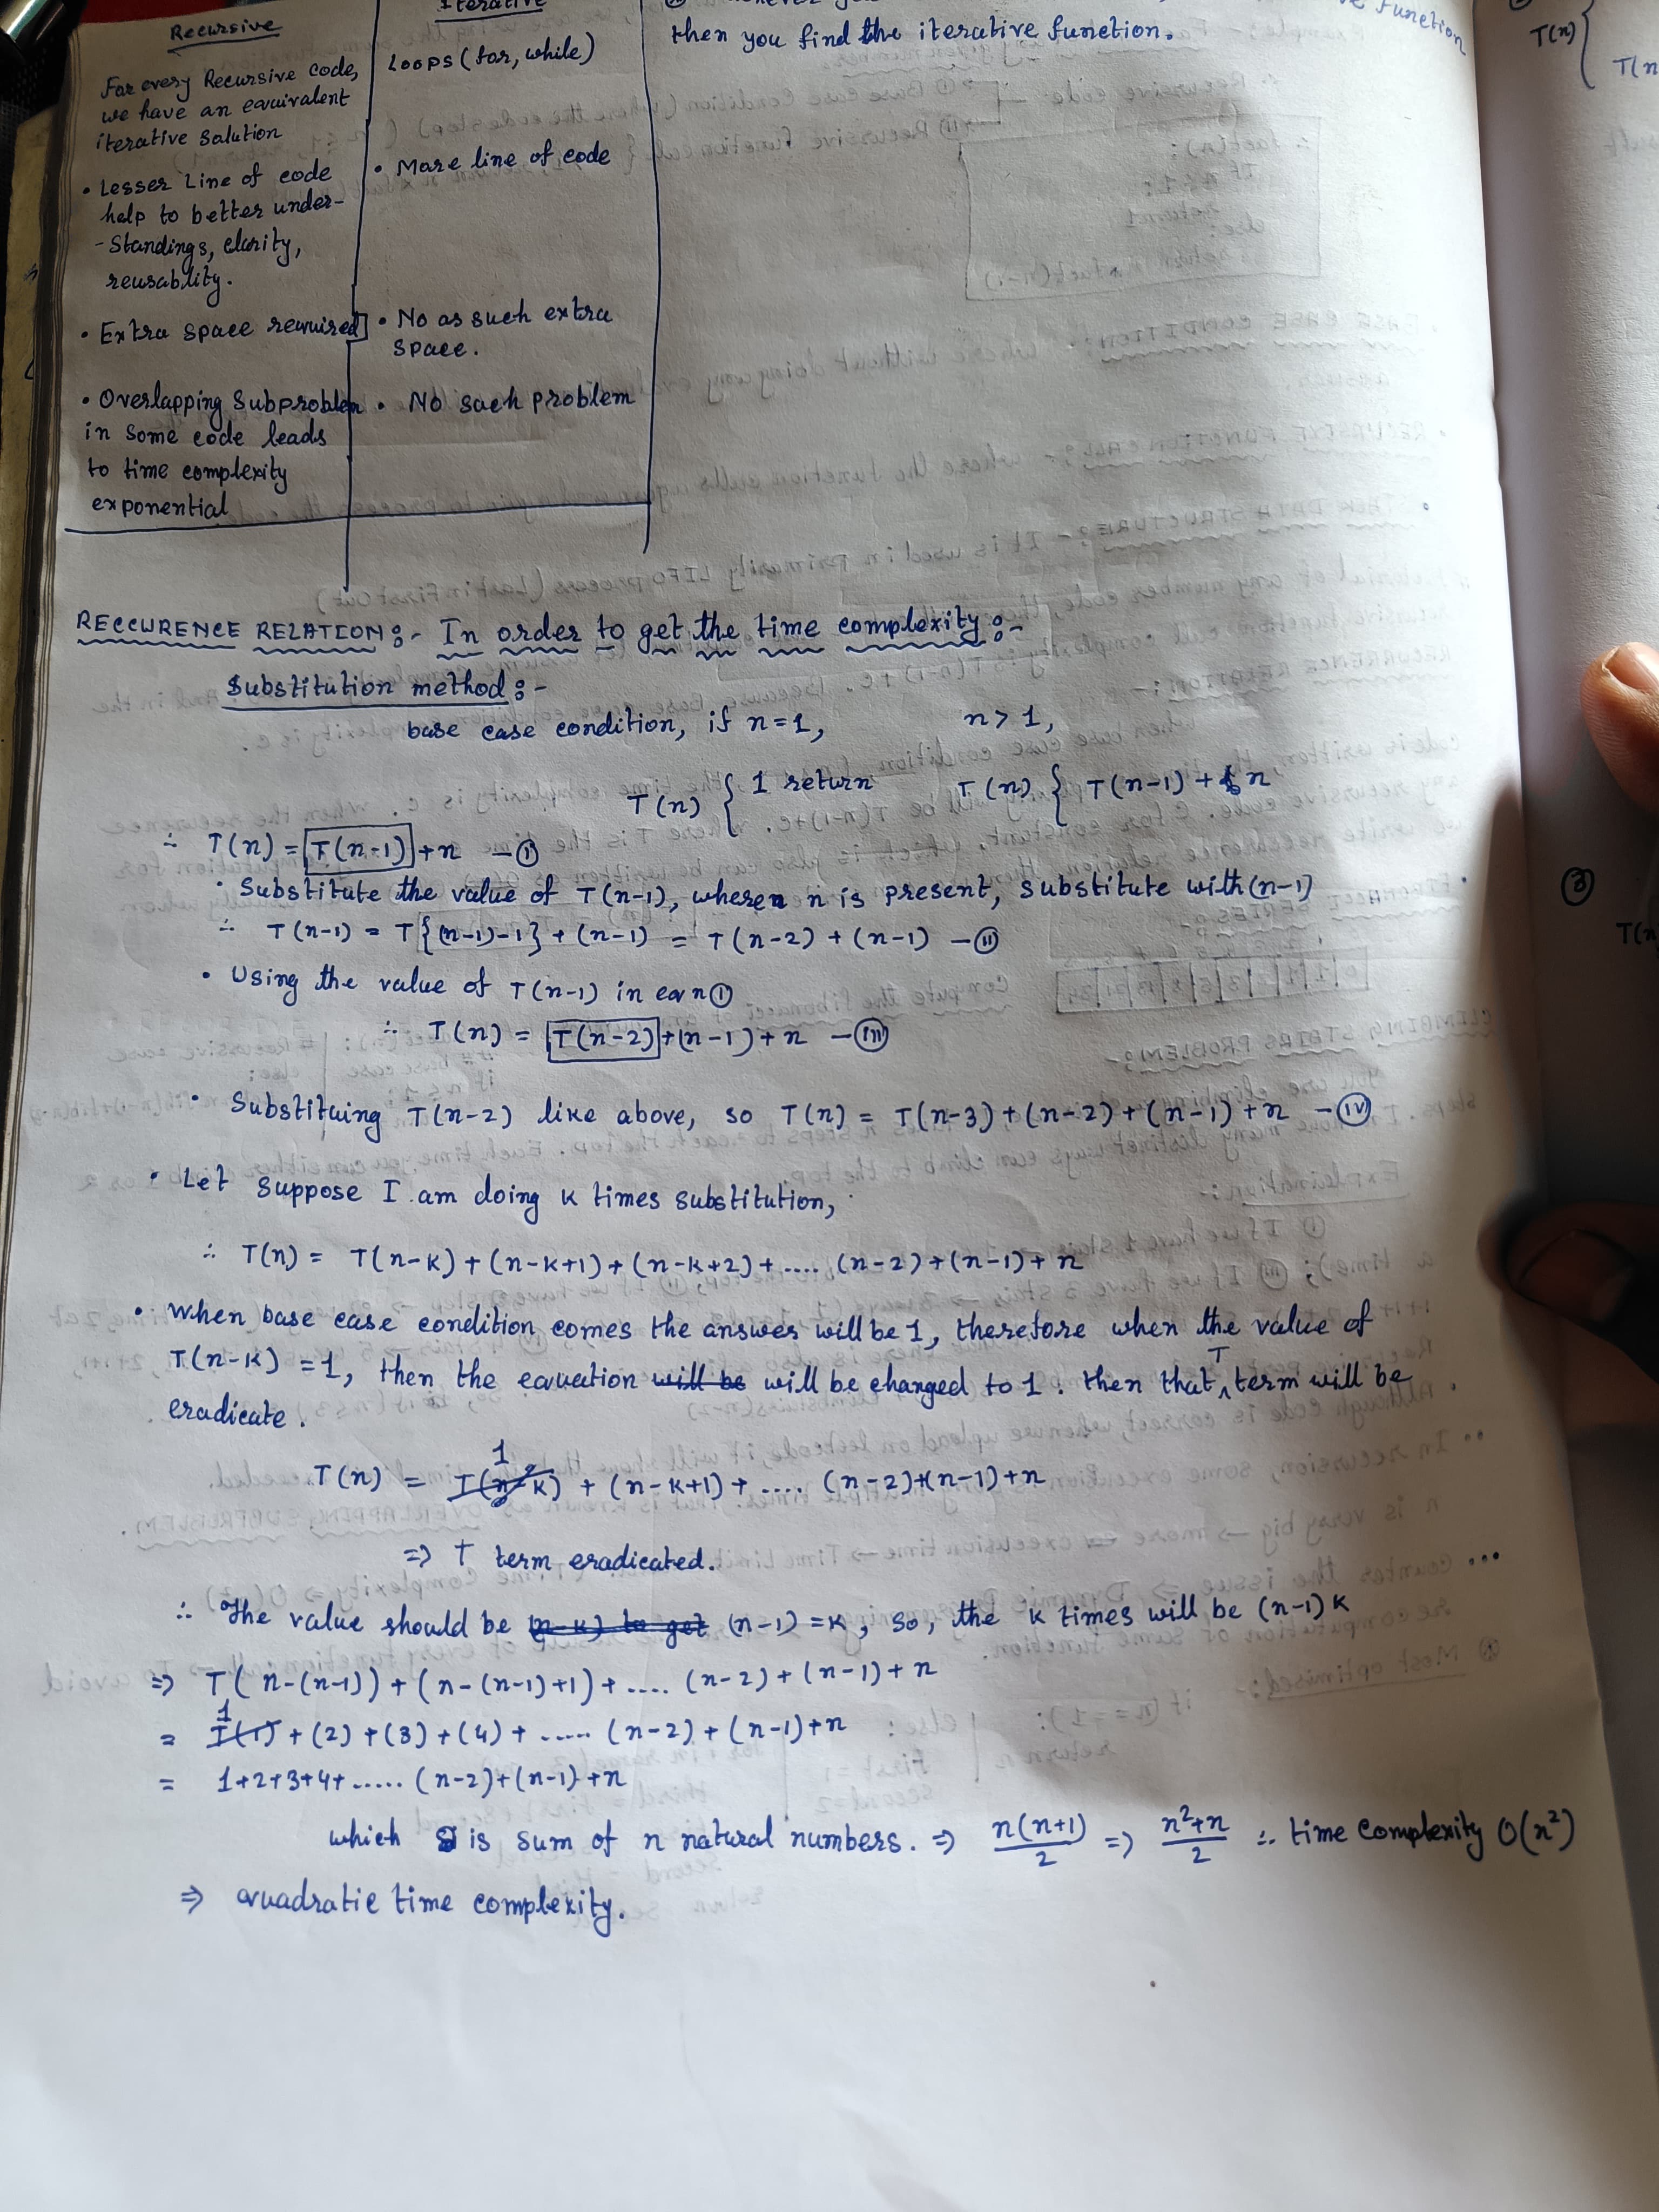 Recursive
Iterative
For every Recursive code,
we have an equivalent
iterative solution
Loops (for, while)
• Lesser Line of code
help to better under-
- Standings, clarity,
reusablity.
• More line of code
• Extra space required
• No as such extra
space.
• Overlapping Subproblem
in some code leads
to time complexity
exponential
• No such problem
then you find the iterative function.
function
T(n) {
RECCURENCE RELATION:- In order to get the time complexity:-
Substitution method:-
base case condition, if n=1, n > 1,
T(n) { 1 return T(n) { T(n-1) + n
∴ T(n) = T(n-1) + n — (i)
• Substitute the value of T(n-1), where n is present, substitute with (n-1)
∴ T(n-1) = T{(n-1)-1} + (n-1) = T(n-2) + (n-1) — (ii)
• Using the value of T(n-1) in eqn (i)
∴ T(n) = T(n-2) + (n-1) + n — (iii)
• Substituing T(n-2) like above, so T(n) = T(n-3) + (n-2) + (n-1) + n — (iv)
• Let suppose I am doing k times substitution,
∴ T(n) = T(n-k) + (n-k+1) + (n-k+2) + .... (n-2) + (n-1) + n
• When base case condition comes the answer will be 1, therefore when the value of
T(n-k) = 1, then the equation will be will be changed to 1. then that T term will be
eradicate.
T(n) = T(n-k) 1 + (n-k+1) + .... (n-2)+(n-1)+n
⇒ T term eradicated.
∴ The value should be (n-k) to get (n-1) = k, so, the k times will be (n-1) k
⇒ T(n-(n-1)) + (n-(n-1)+1) + .... (n-2) + (n-1) + n
= T(1) 1 + (2) + (3) + (4) + ..... (n-2) + (n-1)+n
= 1+2+3+4+ ..... (n-2)+(n-1)+n
which is sum of n natural numbers. ⇒ n(n+1)/2 ⇒ n²+n/2 ∴ time complexity O(n²)
⇒ quadratic time complexity.